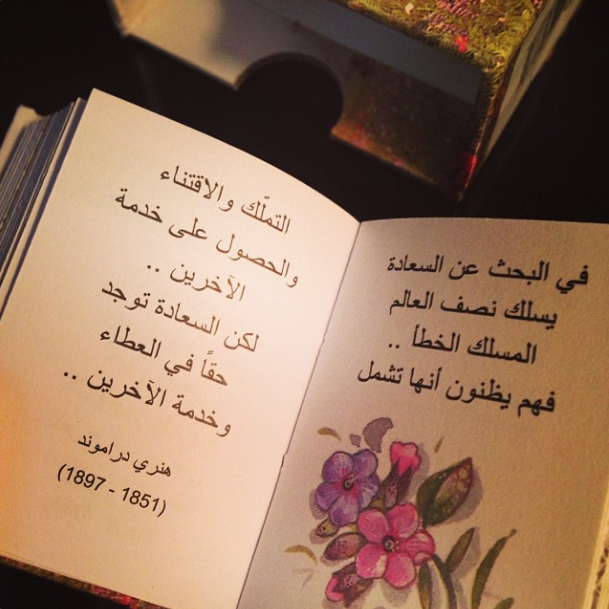 في البحث عن السعادة
يسلك نصف العالم
المسلك الخطأ ..
فهم يظنون أنها تشمل
التملّك والاقتناء
والحصول على خدمة
الآخرين ..
لكن السعادة توجد
حقاً في العطاء
وخدمة الآخرين ..
هنري دراموند
(1851 - 1897)